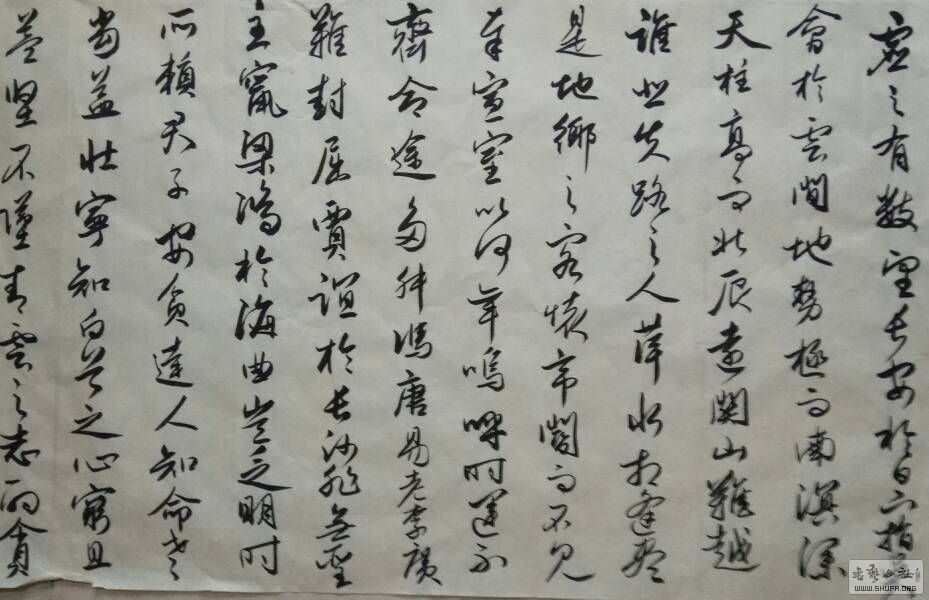 虛之有數望長安於日下指吳
會於雲間地勢極而南溟深
天柱高而北辰遠關山難越
誰悲失路之人萍水相逢盡
是地鄉之客懷帝閽而不見
奉宣室以何年嗚呼時運不
齊命途多舛馮唐易老李廣
難封屈賈誼於長沙非無聖
主竄梁鴻於海曲豈乏明時
所賴君子安貧達人知命老
當益壯寧知白首之心窮且
益堅不墜青雲之志酌貪
書藝公社
WWW.SHUFA.ORG